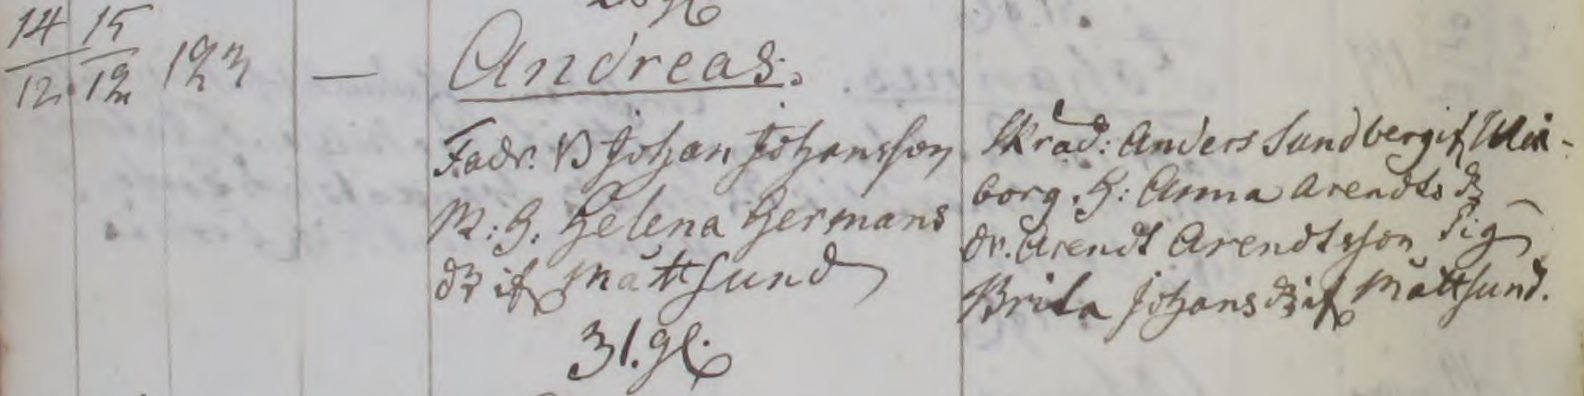 14/12 15/12 123 — Andreas.
Fadr. B Johan Johansson
M: H. Helena Hermans
dr if Måttsund
31. gl.
Skräd: Anders Sundberg if
borg. H: Anna Arendts dr
dr. Arendt Arendtsson Pig
Brita Johans dr if Måttsund.